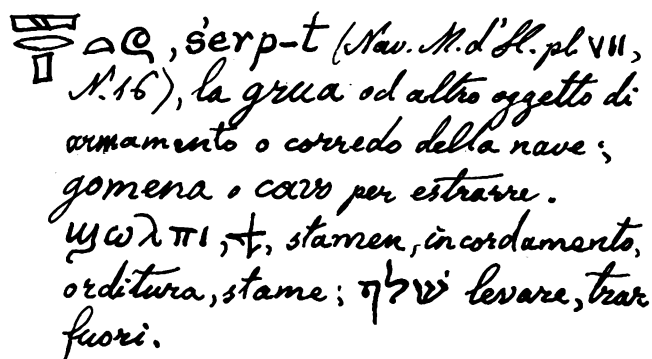 𓈙𓂋𓊪𓏏𓍢, śerp-t (Nav. M. d'H. pl VII,
N. 16), la grua od altro oggetto di
armamento o corredo della nave;
gomena o cavo per estrarre.
ϣⲱⲗⲡⲓ, ϯ, stamen, incordamento,
orditura, stame; שׁלף levare, trar
fuori.